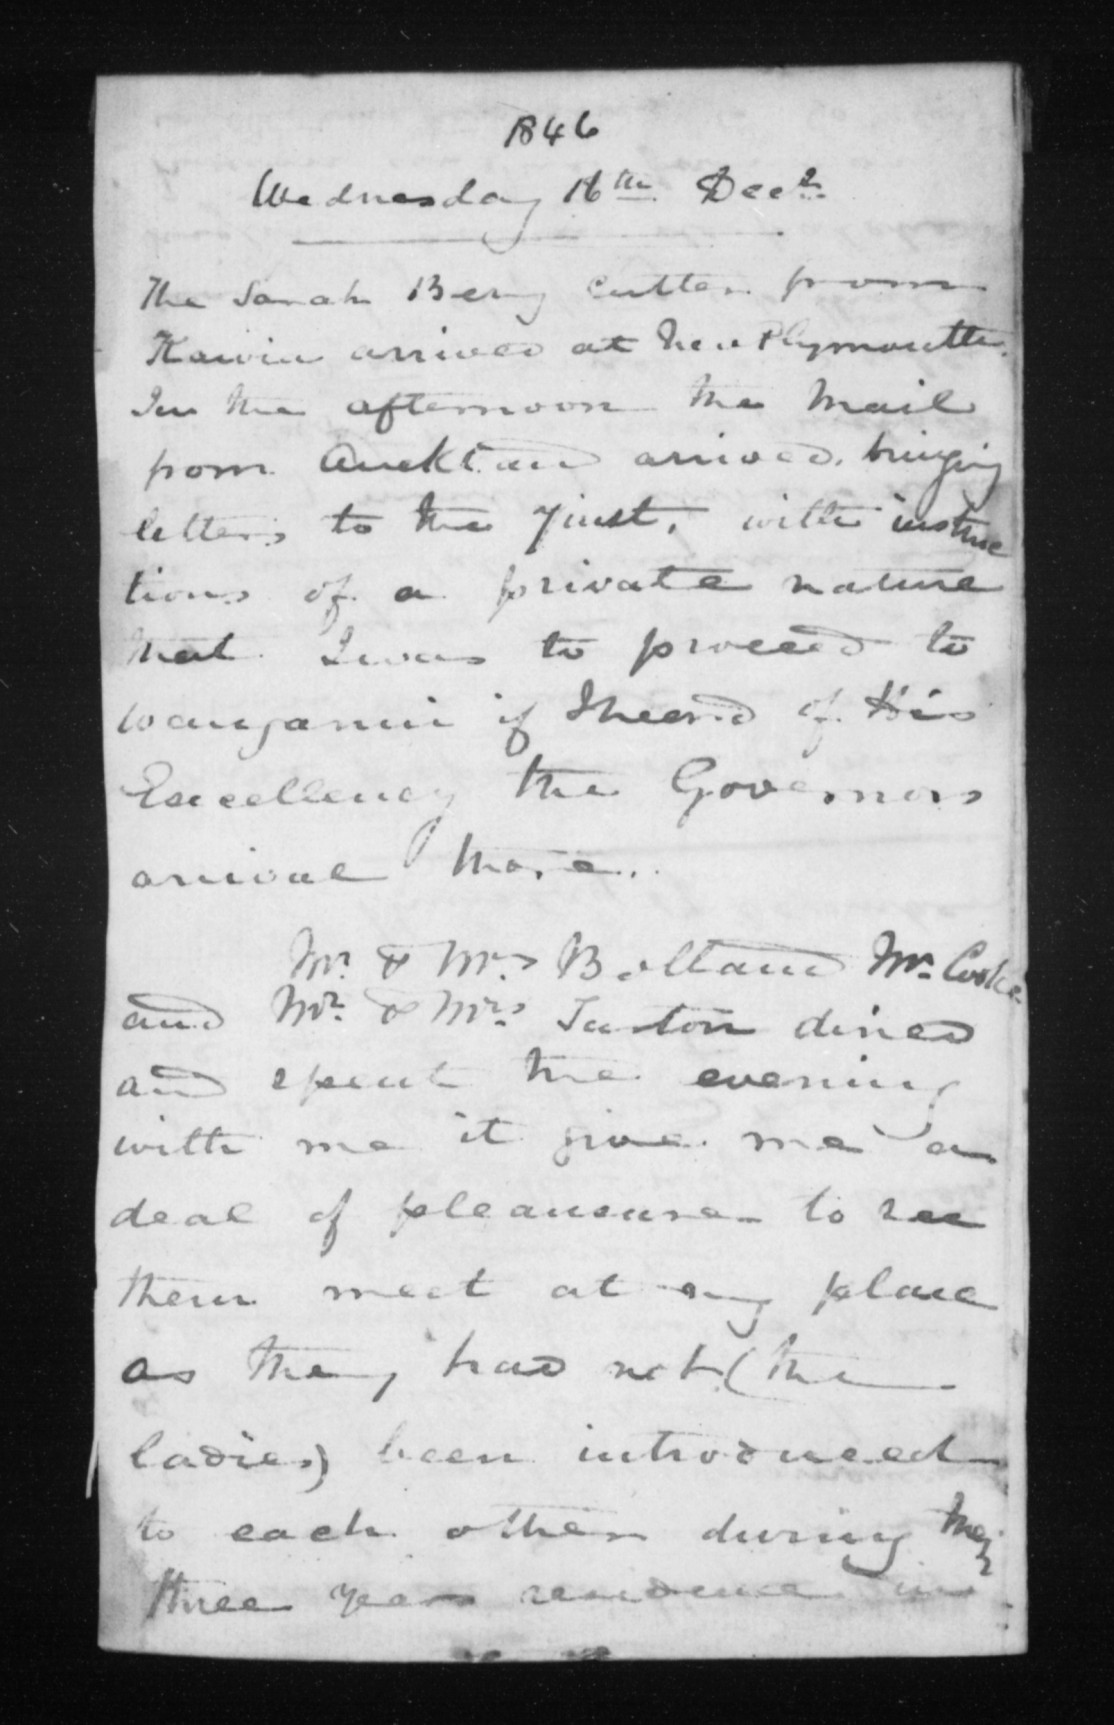 1846
Wednesday 16th Decr.
The Sarah Berry Cutter from
Kawia arrived at New Plymouth.
In the afternoon the Mail
from Auckland arrived, bringing
letters to the 7 inst, with instruc
tions of a private nature
that I was to proceed to
Wanganui if I heard of His
Excellency the Governors
arrival there.
Mr. & Mrs Bolland Mr. Cooke
and Mr. & Mrs. Turton dined
and spent the evening
with me it give me a
deal of pleausure to see
them meet at my place
as they had not (the
ladies) been introduced
to each other during their
three years residence in